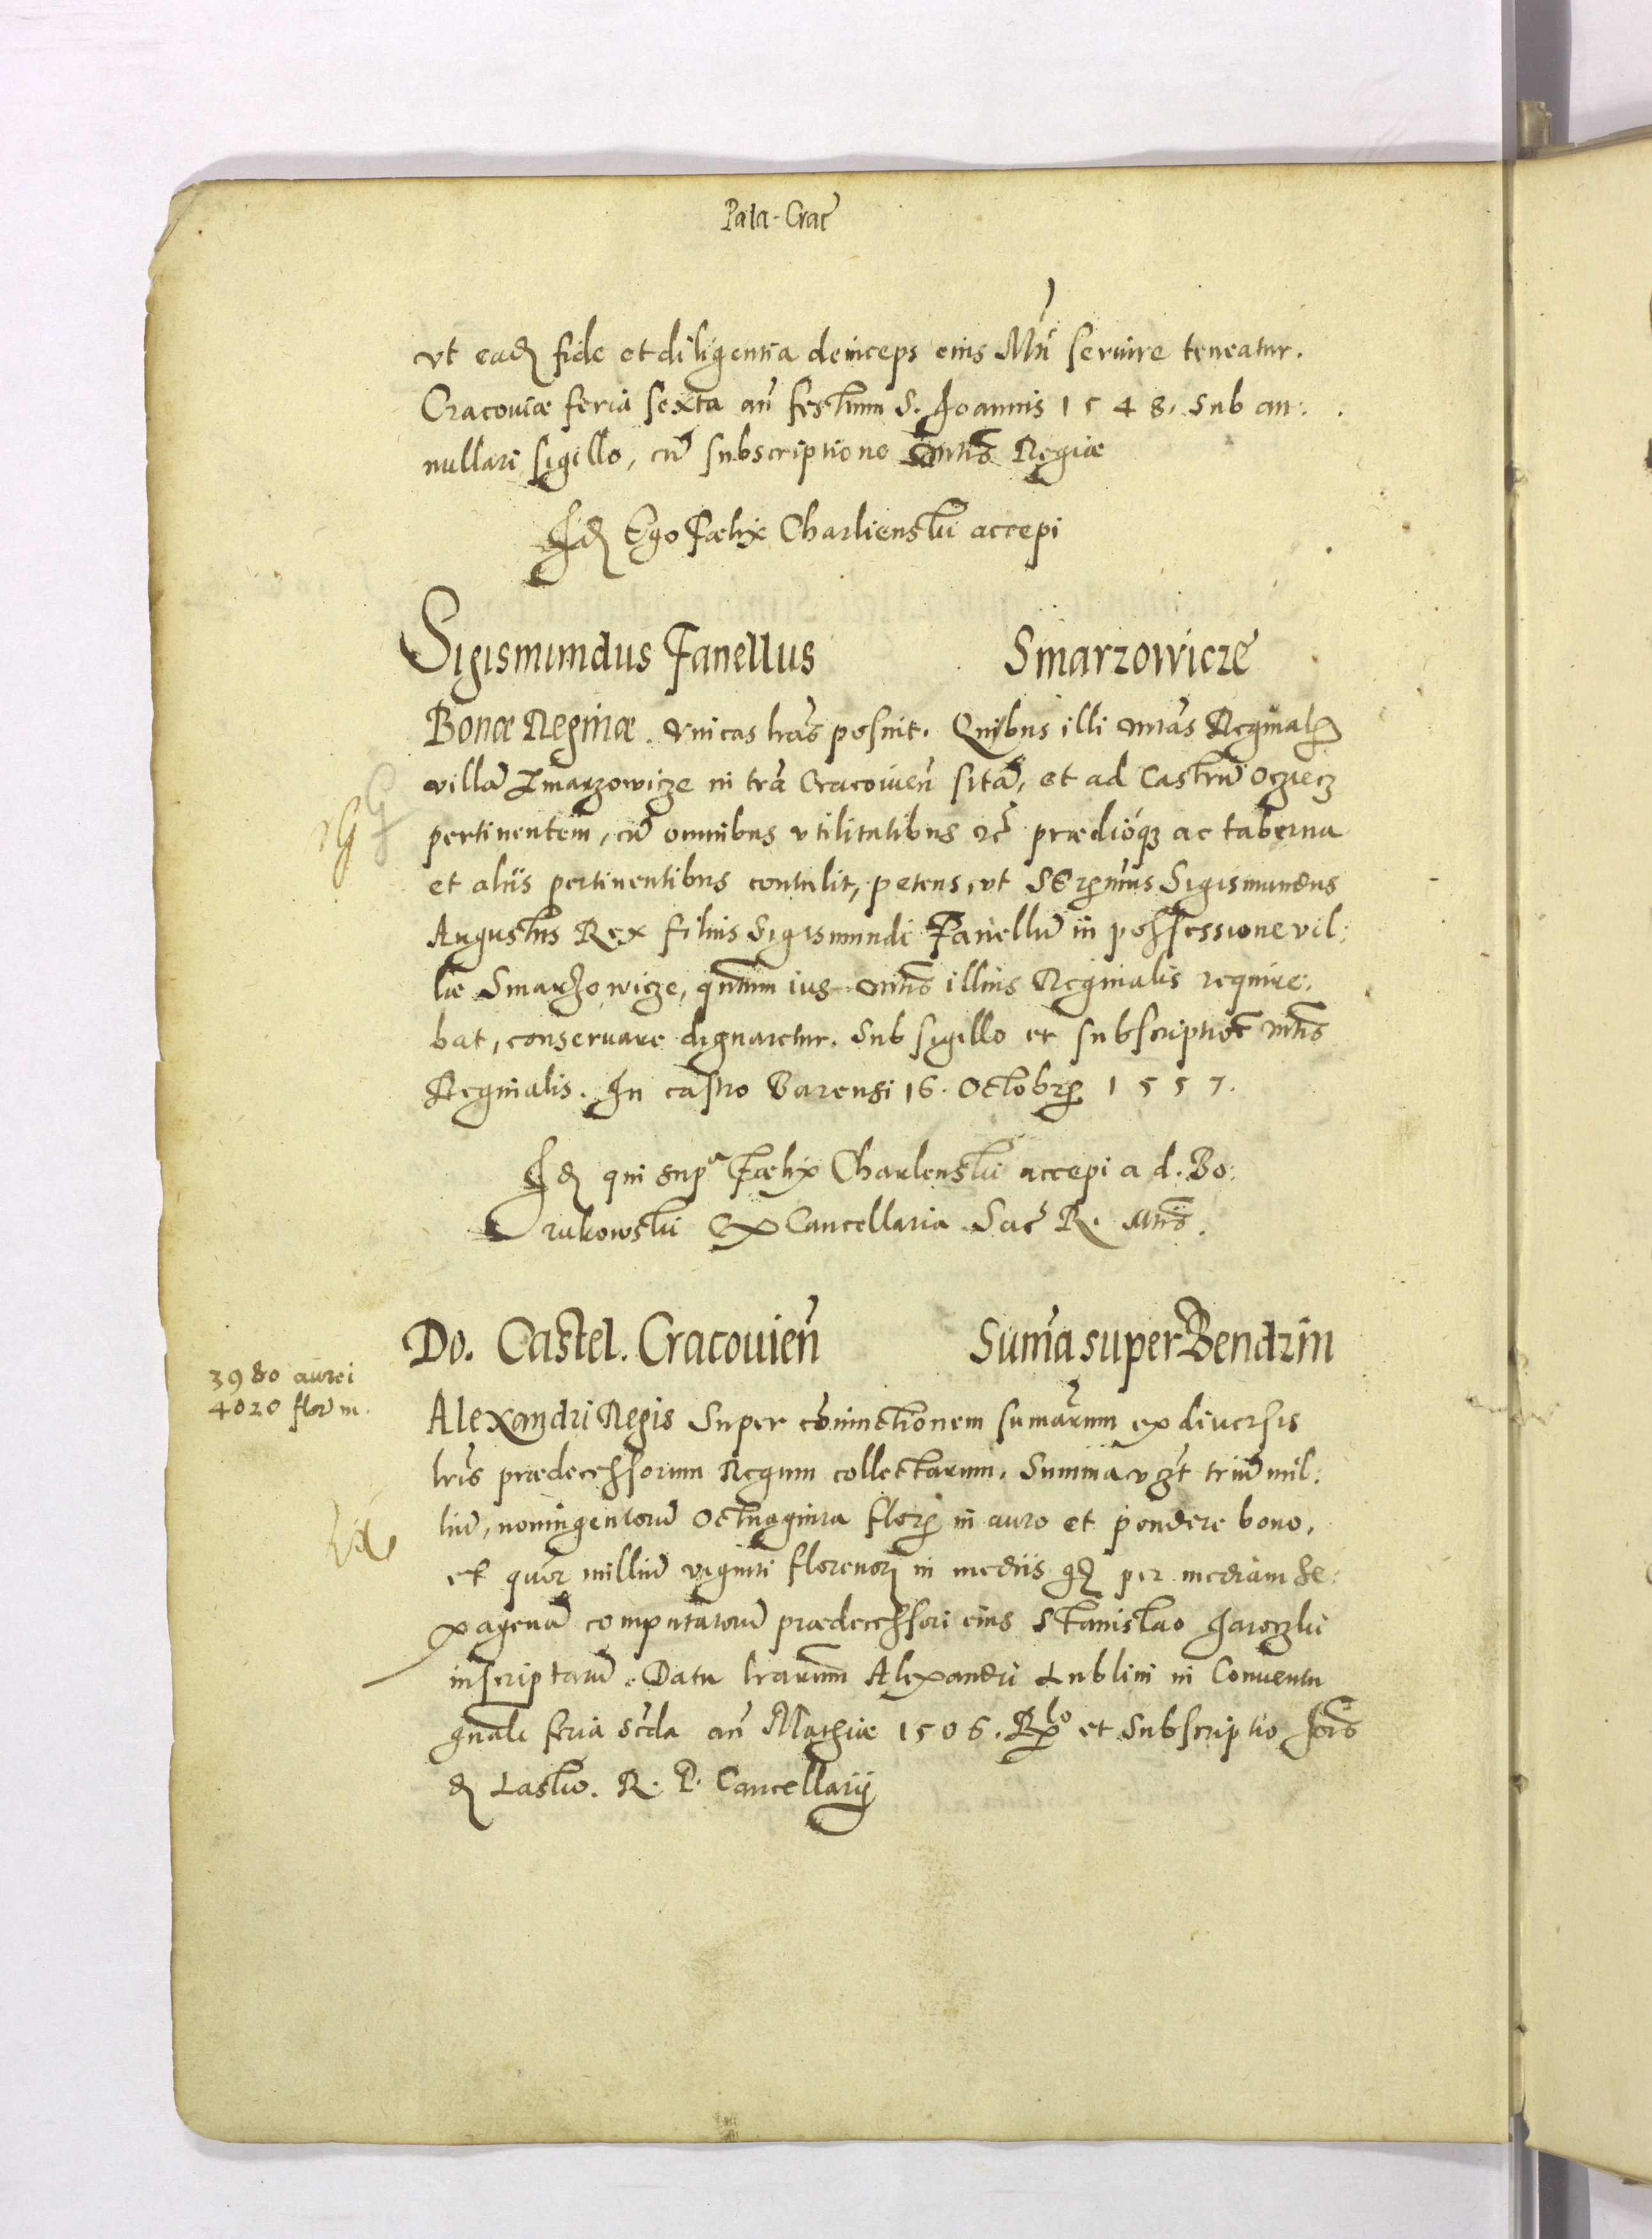 Pala - Crac̃
vt eadꝫ fide et diligentia deinceps eius Mti seruire teneatur.
Cracouiæ feria sexta añ festum S. Joannis 1548. Sub an:
nullari sigillo, cũ subscriptione Mtis Regiæ
Idꝫ Ego Fælix Charlienski accepi
Sigismundus Fanellus Smarzowicze
Bonæ Reginæ. vnicas lr̃as posuit. Quibus illi Mtas Reginalꝭ
villã Zmarzowicze in trã Cracouieñ sitã, et ad Castrũ Ocziecz
pertinentem, cũ omnibus vtilitatibus ꝛc̃ prædióqꝫ ac taberna
et aliis pertinentibus contulit, petens, vt SErꝫmus Sigismundus
Augustus Rex filius Sigismundi Fanellũ in possessione vil:
læ Smarzowicze, qũtum ius Mtis illius Reginalis require:
bat, conseruare dignaretur. Sub sigillo et subscriptiõe Mtis
Reginalis. In castro Barensi 16. Octobrꝭ 1557.
Idꝫ qui supᵃ Fælix Charlenski accepi a d. Bo:
rukowski Ex Cancellaria Sac̃ R. Mtis.
Do. Castel. Cracouieñ Sum̃a super Bendzin
3980 aurei
4020 flor̃ m.
Alexandri Regis Super cõiunctionem sumãrum ex diuersis
lr̃is prædecessorum Regum collectarum. Summã vꝫt triũ mil:
liũ, noningentorũ Octuaginta florꝭ in auro et pondere bono,
et quor̃ milliũ viginti florenorꝭ in mediis gꝭ per mediam se:
xagenã computatorũ prædecessori eius Stanislao Jaroczki
inscriptarũ. Datu lr̃arum Alexandri Lublini in Conuentu
gñali feria scd̃a añ Mathiæ 1506. Rlo et Subscriptio Joĩs
dꝫ Lasko. R. P. Cancellarij